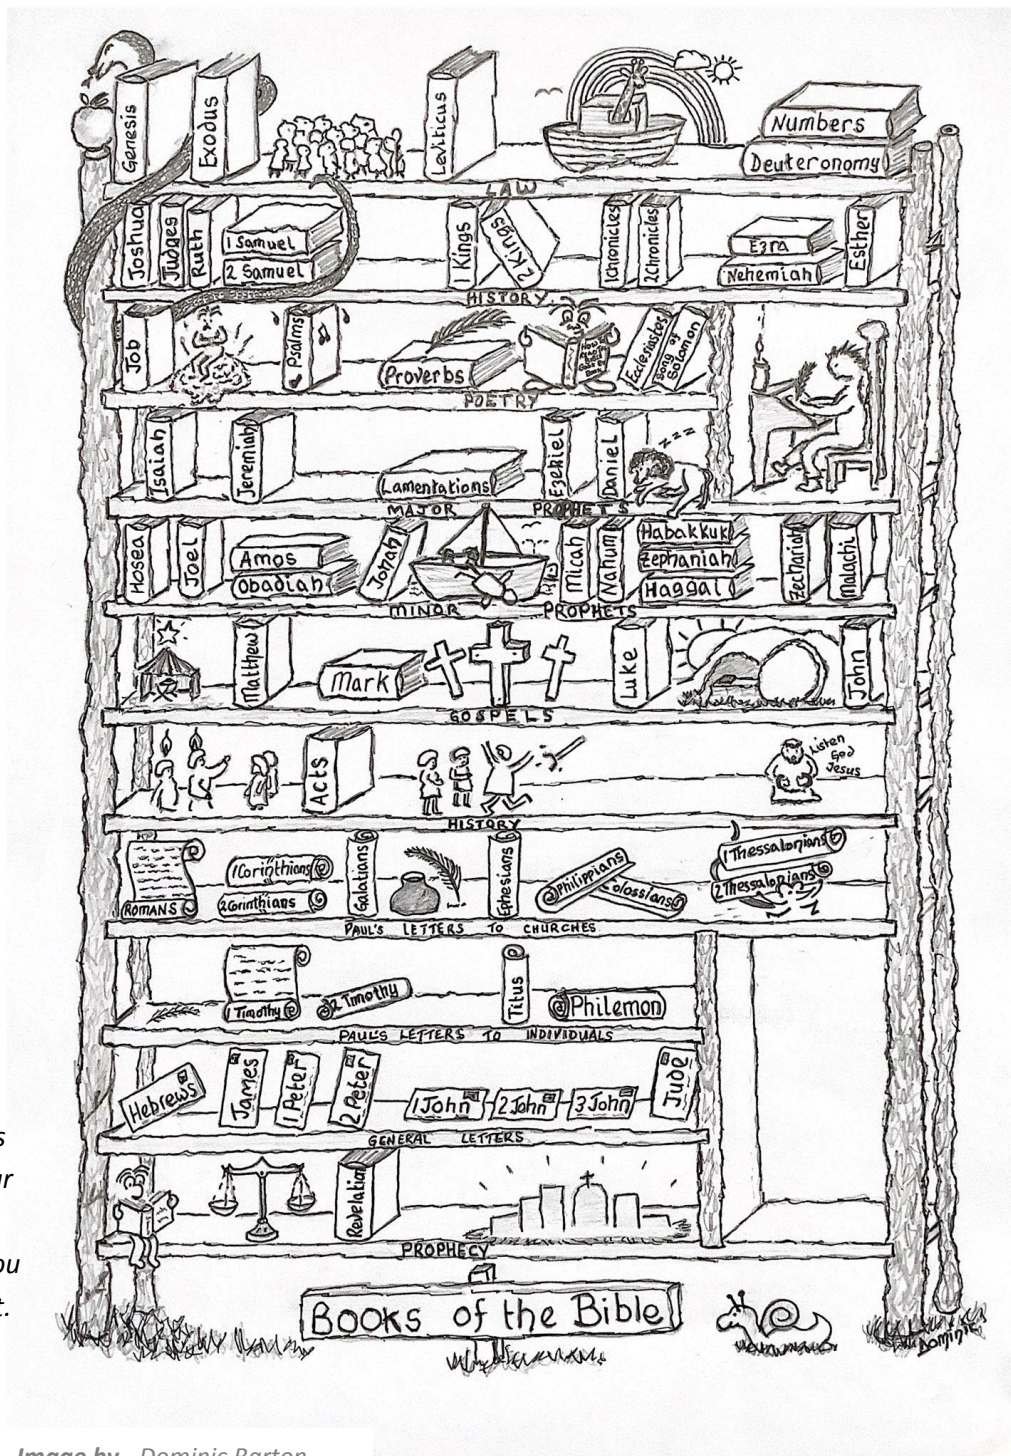 Genesis
Exodus
Leviticus
Numbers
Deuteronomy
LAW
Joshua
Judges
Ruth
1 Samuel
2 Samuel
1 Kings
2 Kings
1 Chronicles
2 Chronicles
Ezra
Nehemiah
Esther
HISTORY
Job
Psalms
Proverbs
Ecclesiastes
Song of Solomon
POETRY
Isaiah
Jeremiah
Lamentations
Ezekiel
Daniel
zzz
MAJOR PROPHETS
Hosea
Joel
Amos
Obadiah
Jonah
Micah
Nahum
Habakkuk
Zephaniah
Haggai
Zechariah
Malachi
MINOR PROPHETS
Matthew
Mark
Luke
John
GOSPELS
Acts
Listen
God
Jesus
HISTORY
ROMANS
1 Corinthians
2 Corinthians
Galatians
Ephesians
Philippians
Colossians
1 Thessalonians
2 Thessalonians
PAUL'S LETTERS TO CHURCHES
1 Timothy
2 Timothy
Titus
Philemon
PAUL'S LETTERS TO INDIVIDUALS
Hebrews
James
1 Peter
2 Peter
1 John
2 John
3 John
Jude
GENERAL LETTERS
Revelation
PROPHECY
Books of the Bible
Dominic
Image by Dominic Barton